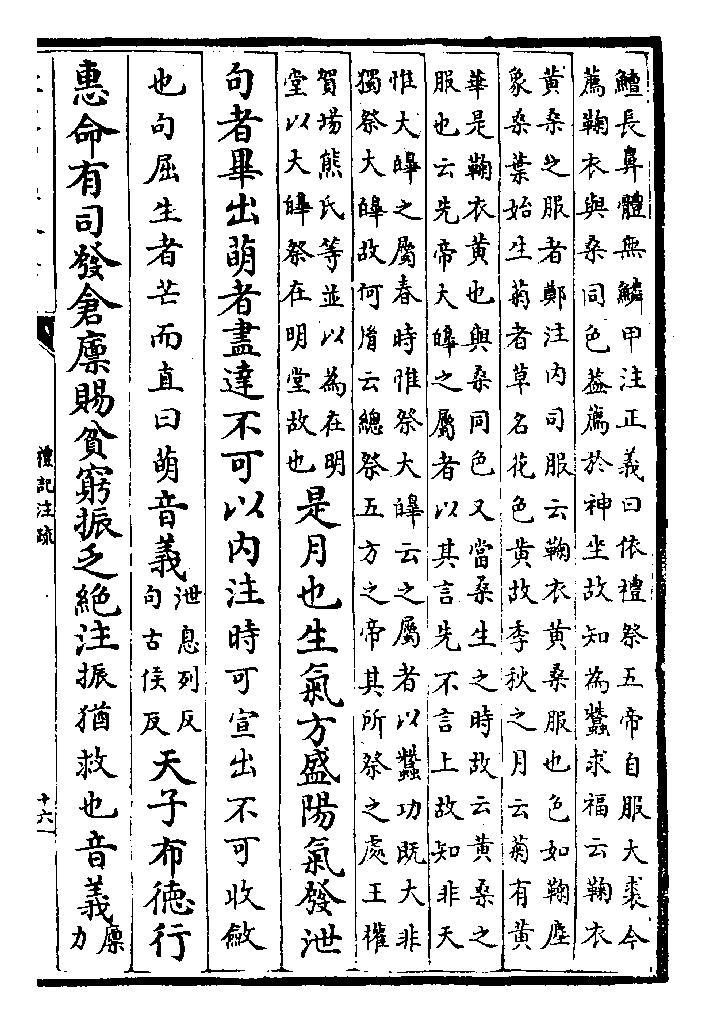 鱣長鼻體無鱗甲注正義曰依禮祭五帝自服大裘今
薦鞠衣與桑同色葢薦於神坐故知為蠶求福云鞠衣
黄桑之服者鄭注内司服云鞠衣黄桑服也色如鞠塵
象桑葉始生菊者草名花色黄故季秋之月云菊有黄
華是鞠衣黄也與桑同色又當桑生之時故云黄桑之
服也云先帝大皥之屬者以其言先不言上故知非天
惟大皥之屬春時惟祭大皥云之屬者以蠶功既大非
獨祭大皥故何𦙍云總祭五方之帝其所祭之處王權
賀瑒熊氏等並以為在明
堂以大皥祭在明堂故也
是月也生氣方盛陽氣發泄
句者畢出萌者盡達不可以内注時可宣出不可收斂
也句屈生者芒而直曰萌音義
泄息列反
句古侯反
天子布德行
惠命有司發倉廩賜貧窮振乏絶注振猶救也音義
廩
力
禮記注疏
十六